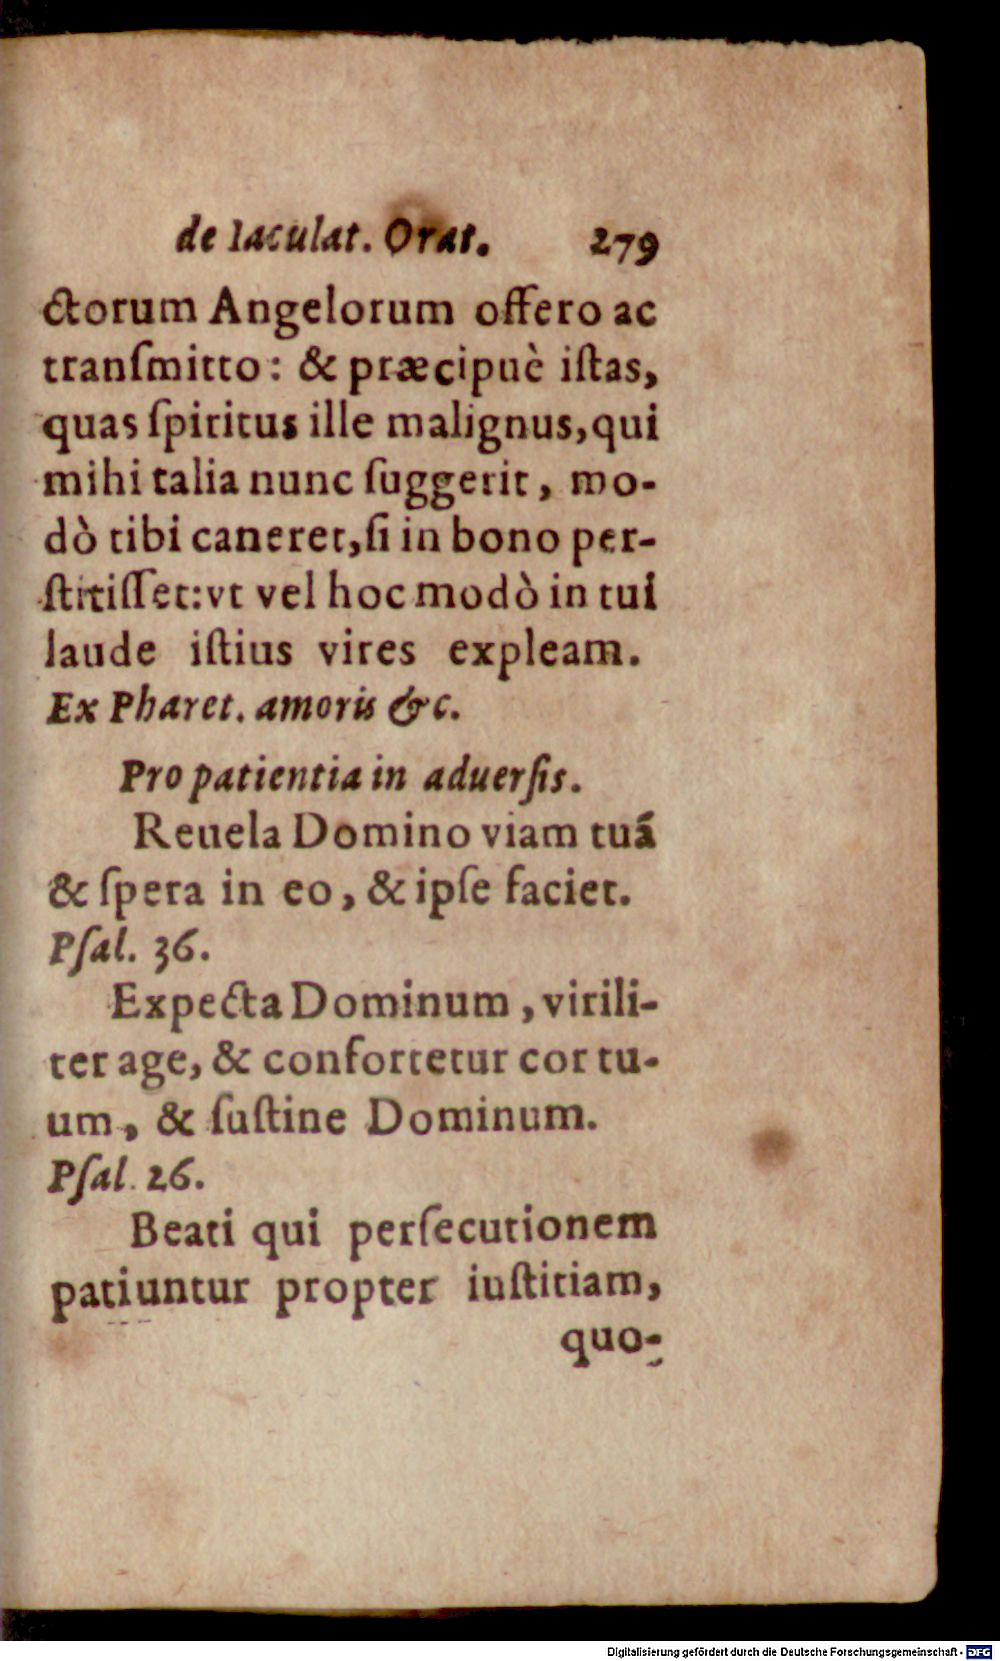 de Iaculat. Orat. 279
ctorum Angelorum offero ac
tranſmitto: & præcipuè iſtas,
quas ſpiritus ille malignus, qui
mihi talia nunc ſuggerit, mo-
dò tibi caneret, ſi in bono per-
ſtitiſſet: vt vel hoc modò in tui
laude iſtius vires expleam.
Ex Pharet. amoris &c.
Pro patientia in aduerſis.
Reuela Domino viam tuã
& ſpera in eo, & ipſe faciet.
Pſal. 36.
Expecta Dominum, virili-
ter age, & confortetur cor tu-
um, & ſuſtine Dominum.
Pſal. 26.
Beati qui perſecutionem
patiuntur propter iuſtitiam,
quo-
Digitalisierung gefördert durch die Deutsche Forschungsgemeinschaft - DFG